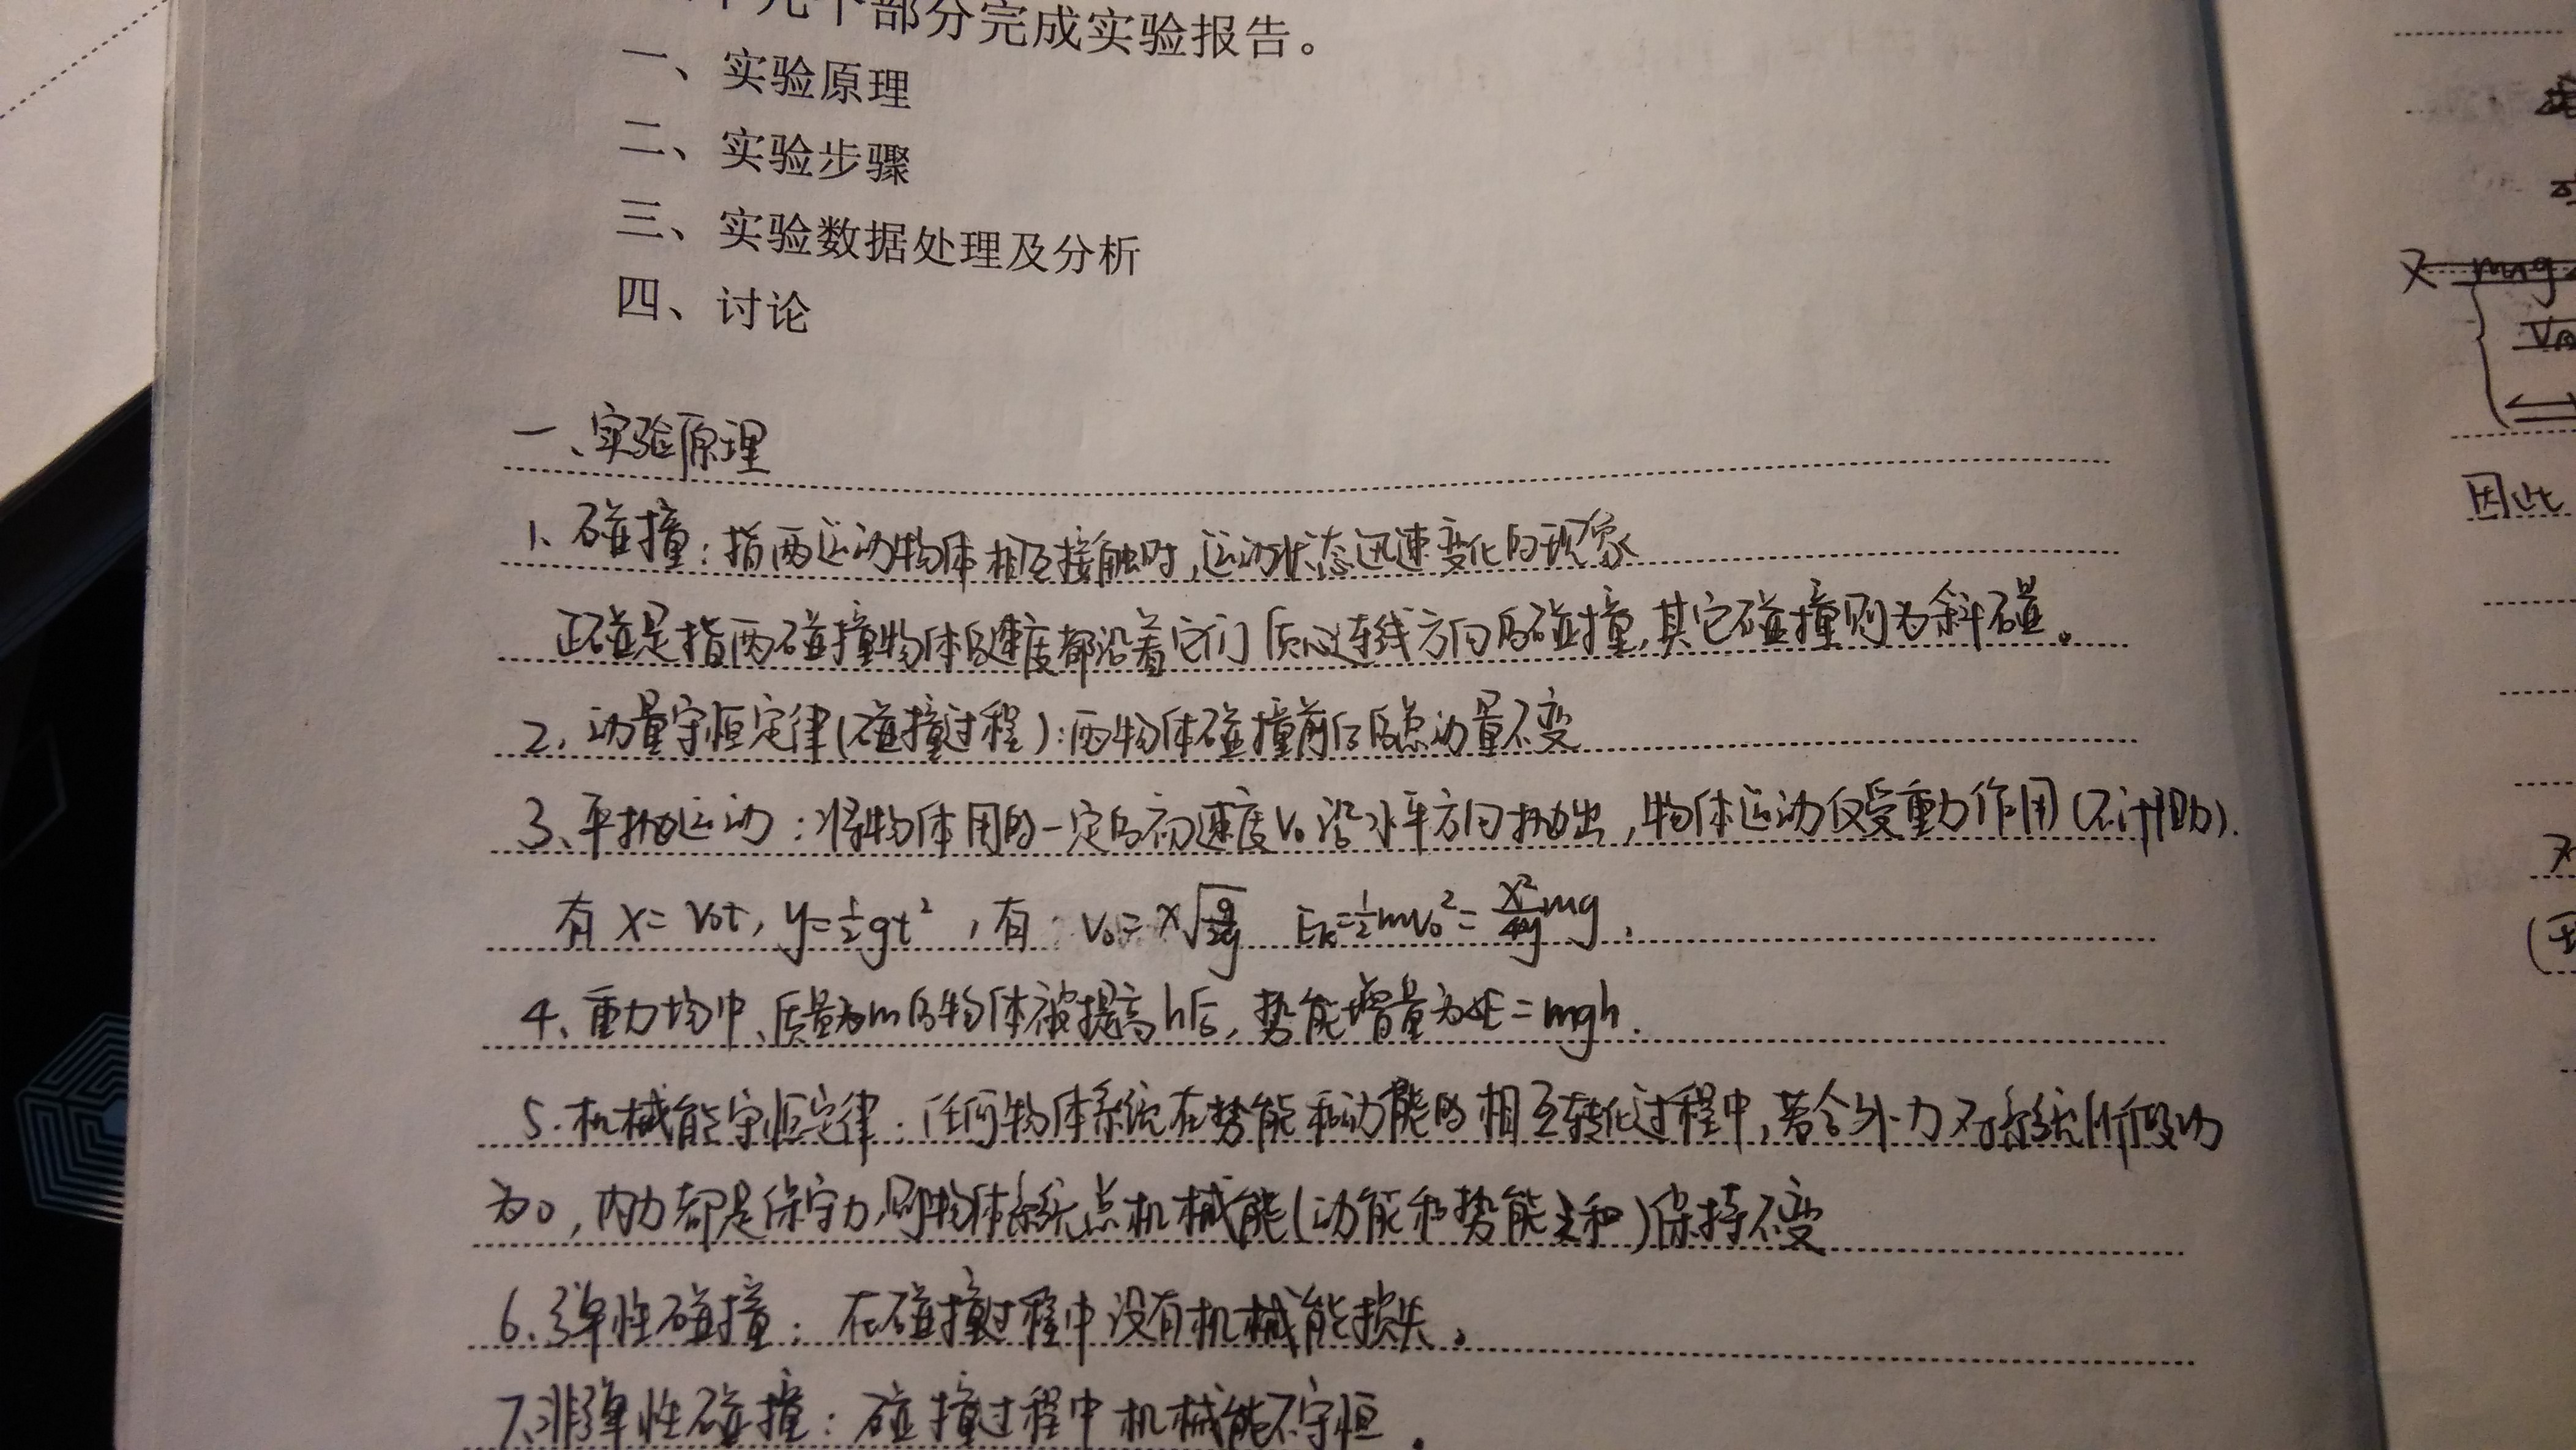 部分完成实验报告。
一、实验原理
二、实验步骤
三、实验数据处理及分析
四、讨论
一、实验原理
1、碰撞：指两运动物体相互接触时，运动状态迅速变化的现象
正碰是指两碰撞物体的速度都沿着它们质心连线方向的碰撞，其它碰撞则为斜碰。
2、动量守恒定律（碰撞过程）：两物体碰撞前后的总动量不变
3、平抛运动：将物体用的一定的初速度V₀沿水平方向抛出，物体运动仅受重力作用（不计阻力）.
有 x=v₀t, y=½gt²，有：v₀=x√(g/2y) Eₖ=½mv₀²=x²/4y mg,
4、重力场中、质量为m的物体被提高h后，势能增量为ΔE=mgh.
5.机械能守恒定律：任何物体系统在势能和动能的相互转化过程中，若合外力对系统所做功
为0，内力都是保守力，则物体系统总机械能（动能和势能之和）保持不变
6、弹性碰撞：在碰撞过程中没有机械能损失。
7、非弹性碰撞：碰撞过程中机械能不守恒。
又 mg
因此